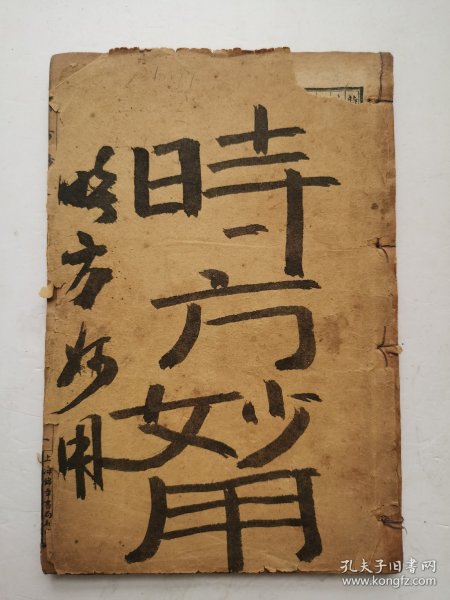 時方妙用
時方妙用
上海錦章書局
孔夫子旧书网
www.kongfz.com